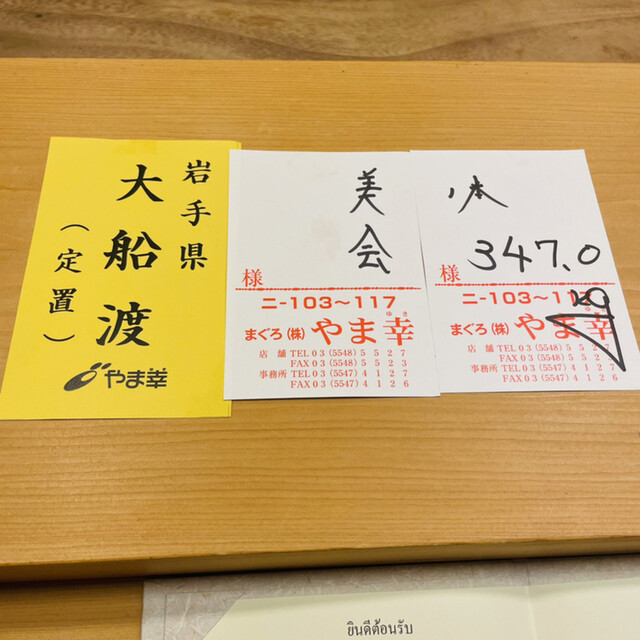 岩手県
大船渡
(定置)
やま幸
美会
様
ニ-103〜117
ゆき
まぐろ(株)やま幸
店舗 TEL 03 (5548) 5527
FAX 03 (5548) 5523
事務所 TEL 03 (5547) 4127
FAX 03 (5547) 4126
本
347.0
様
ニ-103〜11
ゆき
まぐろ(株)やま幸
店舗 TEL 03 (5548) 5527
FAX 03 (5548) 552
事務所 TEL 03 (5547) 4127
FAX 03 (5547) 4126
ยินดีต้อนรับ